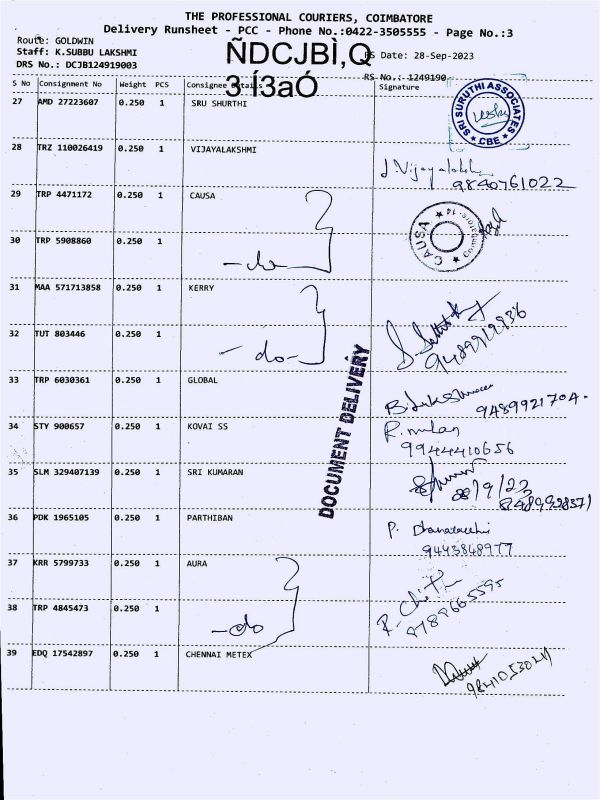 THE PROFESSIONAL COURIERS, COIMBATORE
Delivery Runsheet - PCC - Phone No.:0422-3505555 - Page No.:3
Route: GOLDWIN
Staff: K.SUBBU LAKSHMI
DRS No.: DCJB124919003
ÑDCJBÌ,Q
3 Í3aÓ
RS Date: 28-Sep-2023
RS No.: 1249190
S No Consignment No Weight PCS Consignee Details Signature
27 AMD 27223607 0.250 1 SRU SHURTHI
SRI SURUTHI ASSOCIATES
* CBE *
28 TRZ 110026419 0.250 1 VIJAYALAKSHMI
J. Vijayalakshmi
9840761022
29 TRP 4471172 0.250 1 CAUSA
CAUSA
30 TRP 5908860 0.250 1
-do-
31 MAA 571713858 0.250 1 KERRY
32 TUT 803446 0.250 1
-do-
DOCUMENT DELIVERY
33 TRP 6030361 0.250 1 GLOBAL
9489921704
34 STY 900657 0.250 1 KOVAI SS
9944410656
35 SLM 329407139 0.250 1 SRI KUMARAN
28/9/23
36 PDK 1965105 0.250 1 PARTHIBAN
9443848977
37 KRR 5799733 0.250 1 AURA
38 TRP 4845473 0.250 1
-do
39 EDQ 17542897 0.250 1 CHENNAI METEX